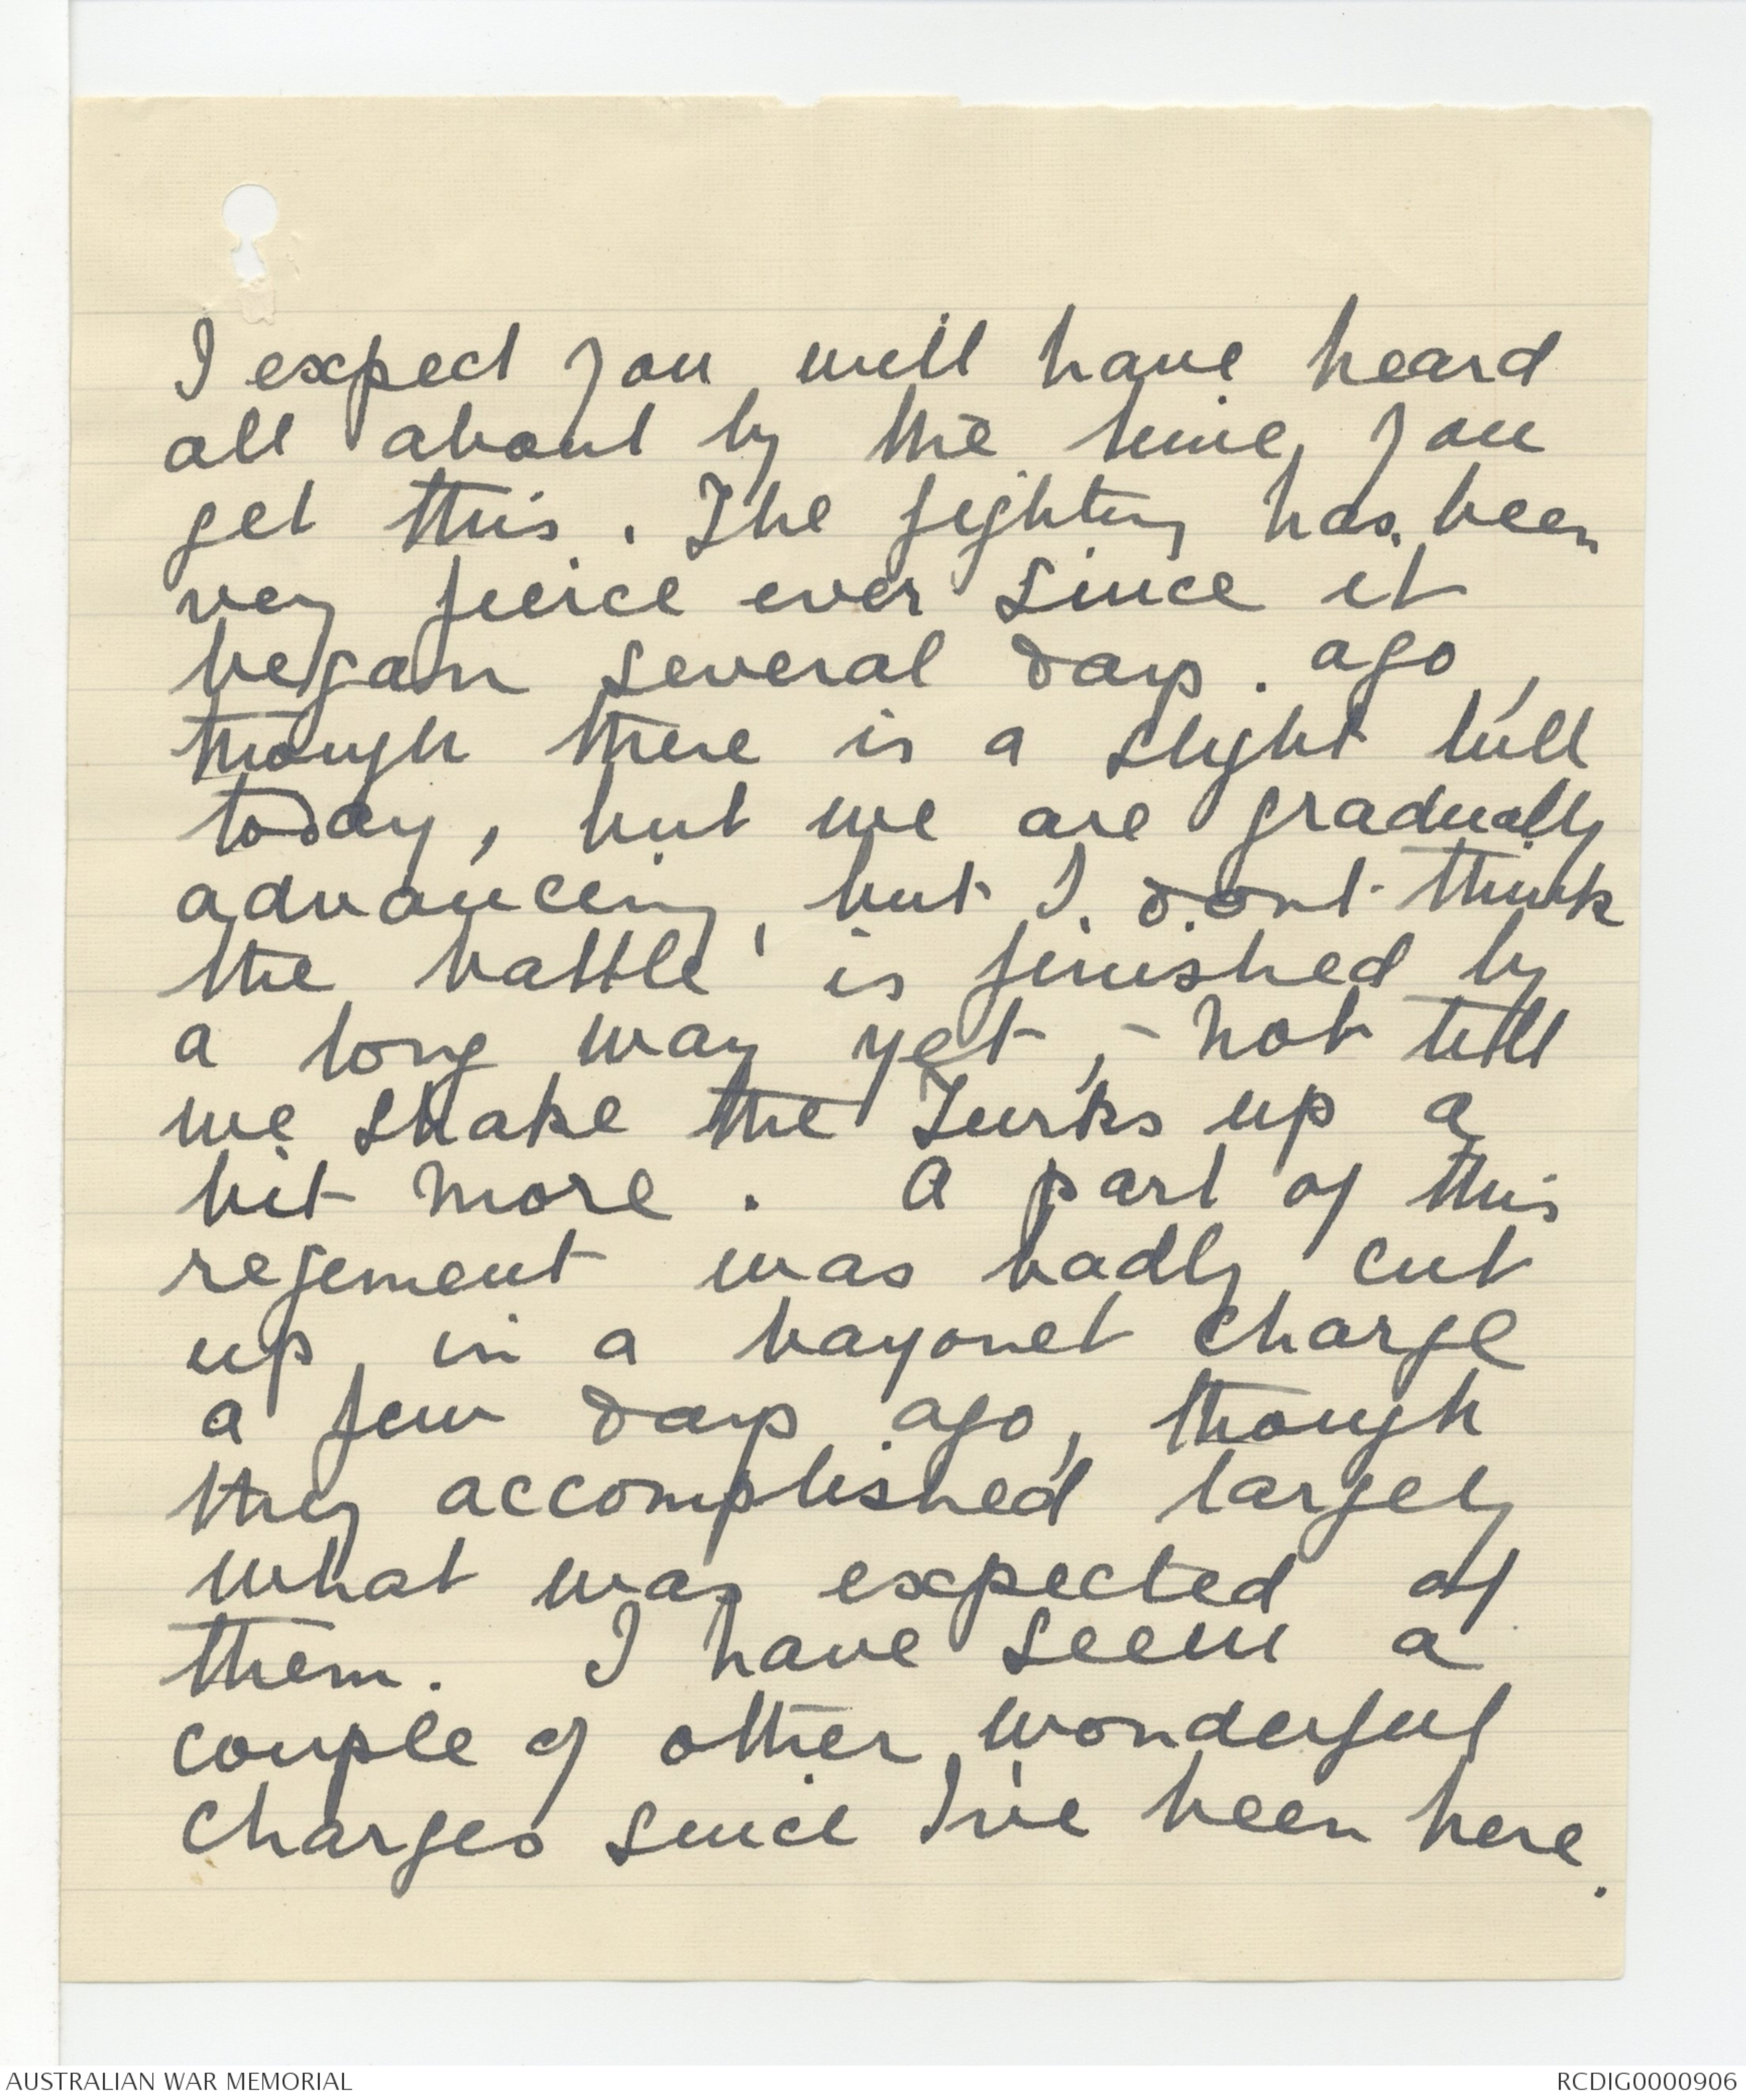 I expect you will have heard
all about by the time you
get this. The fighting has been
very fierce ever since it
began several days. ago,
though there is a slight lull
today, but we are gradually
advancing, but I dont think
the battle is finished by
a long way yet, - not till
we shake the Turks up a
bit more. A part of this
regiment was badly cut
up in a bayonet charge
a few days ago, though
they accomplished largely
what was expected of
them. I have seen a
couple of other wonderful
charges since I've been here.
AUSTRALIAN WAR MEMORIAL
RCDIG0000906